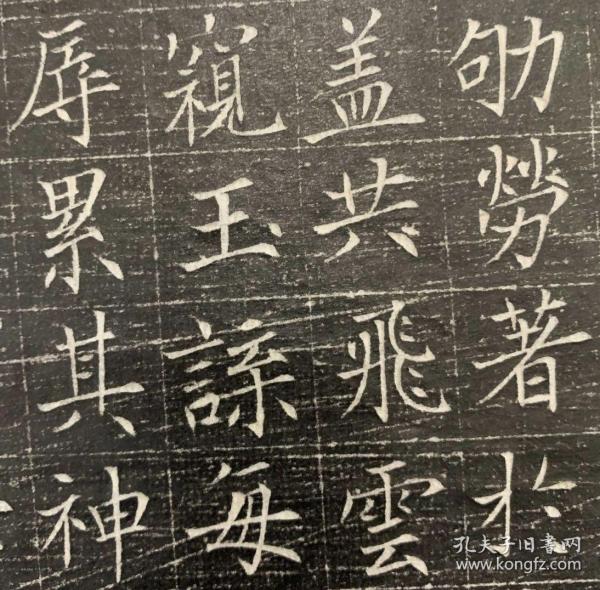 劬勞著於
盖共飛雲
窺玉諜每
辱累其神
孔夫子旧書网
www.kongfz.com